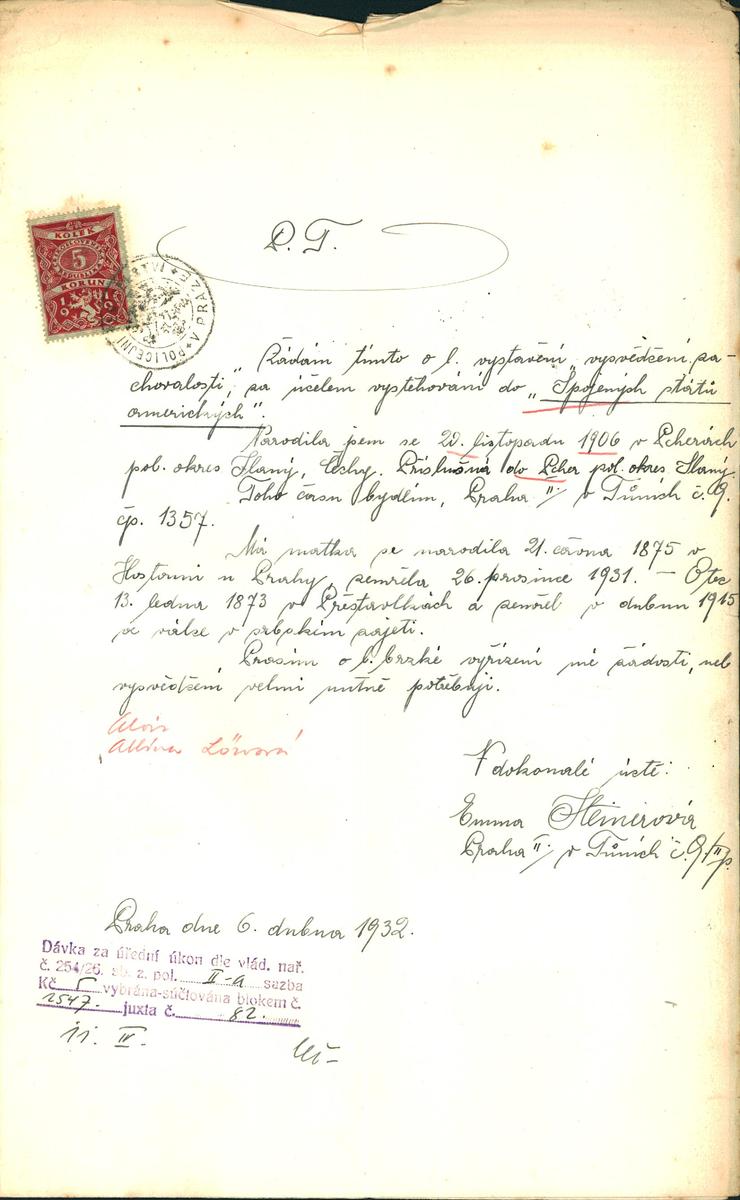 P. T.
KOLEK
5
KORUN
POLICEJNÍ V PRAZE
Žádám tímto o l. vystavení „vysvědčení za-
chovalosti", za účelem vystěhování do „Spojených států
amerických".
Narodila jsem se 20. listopadu 1906 v Pcherách
pol. okres Slaný, Čechy. Příslušná do Pcher pol. okres Slaný.
Toho času bydlím, Praha II./ v Tůních č. 9.
čp. 1357.
Má matka se narodila 21. června 1875 v
Hostouni u Prahy, zemřela 26. prosince 1931. – Otec
13. ledna 1873 v Přestavlkách a zemřel v dubnu 1915
ve válce v srbském zajetí.
Prosím o l. brzké vyřízení mé žádosti, neb
vysvědčení velmi nutně potřebuji.
Alois
Löwová
V dokonalé úctě:
Emma Steinerová
Praha II./ v Tůních č. 9/II p.
Praha dne 6. dubna 1932.
Dávka za úřední úkon dle vlád. nař.
č. 254/26. sb. z. pol. II-a sazba
Kč 5 vybrána-súčtována blokem č.
2547. juxta č. 82.
11. IV.